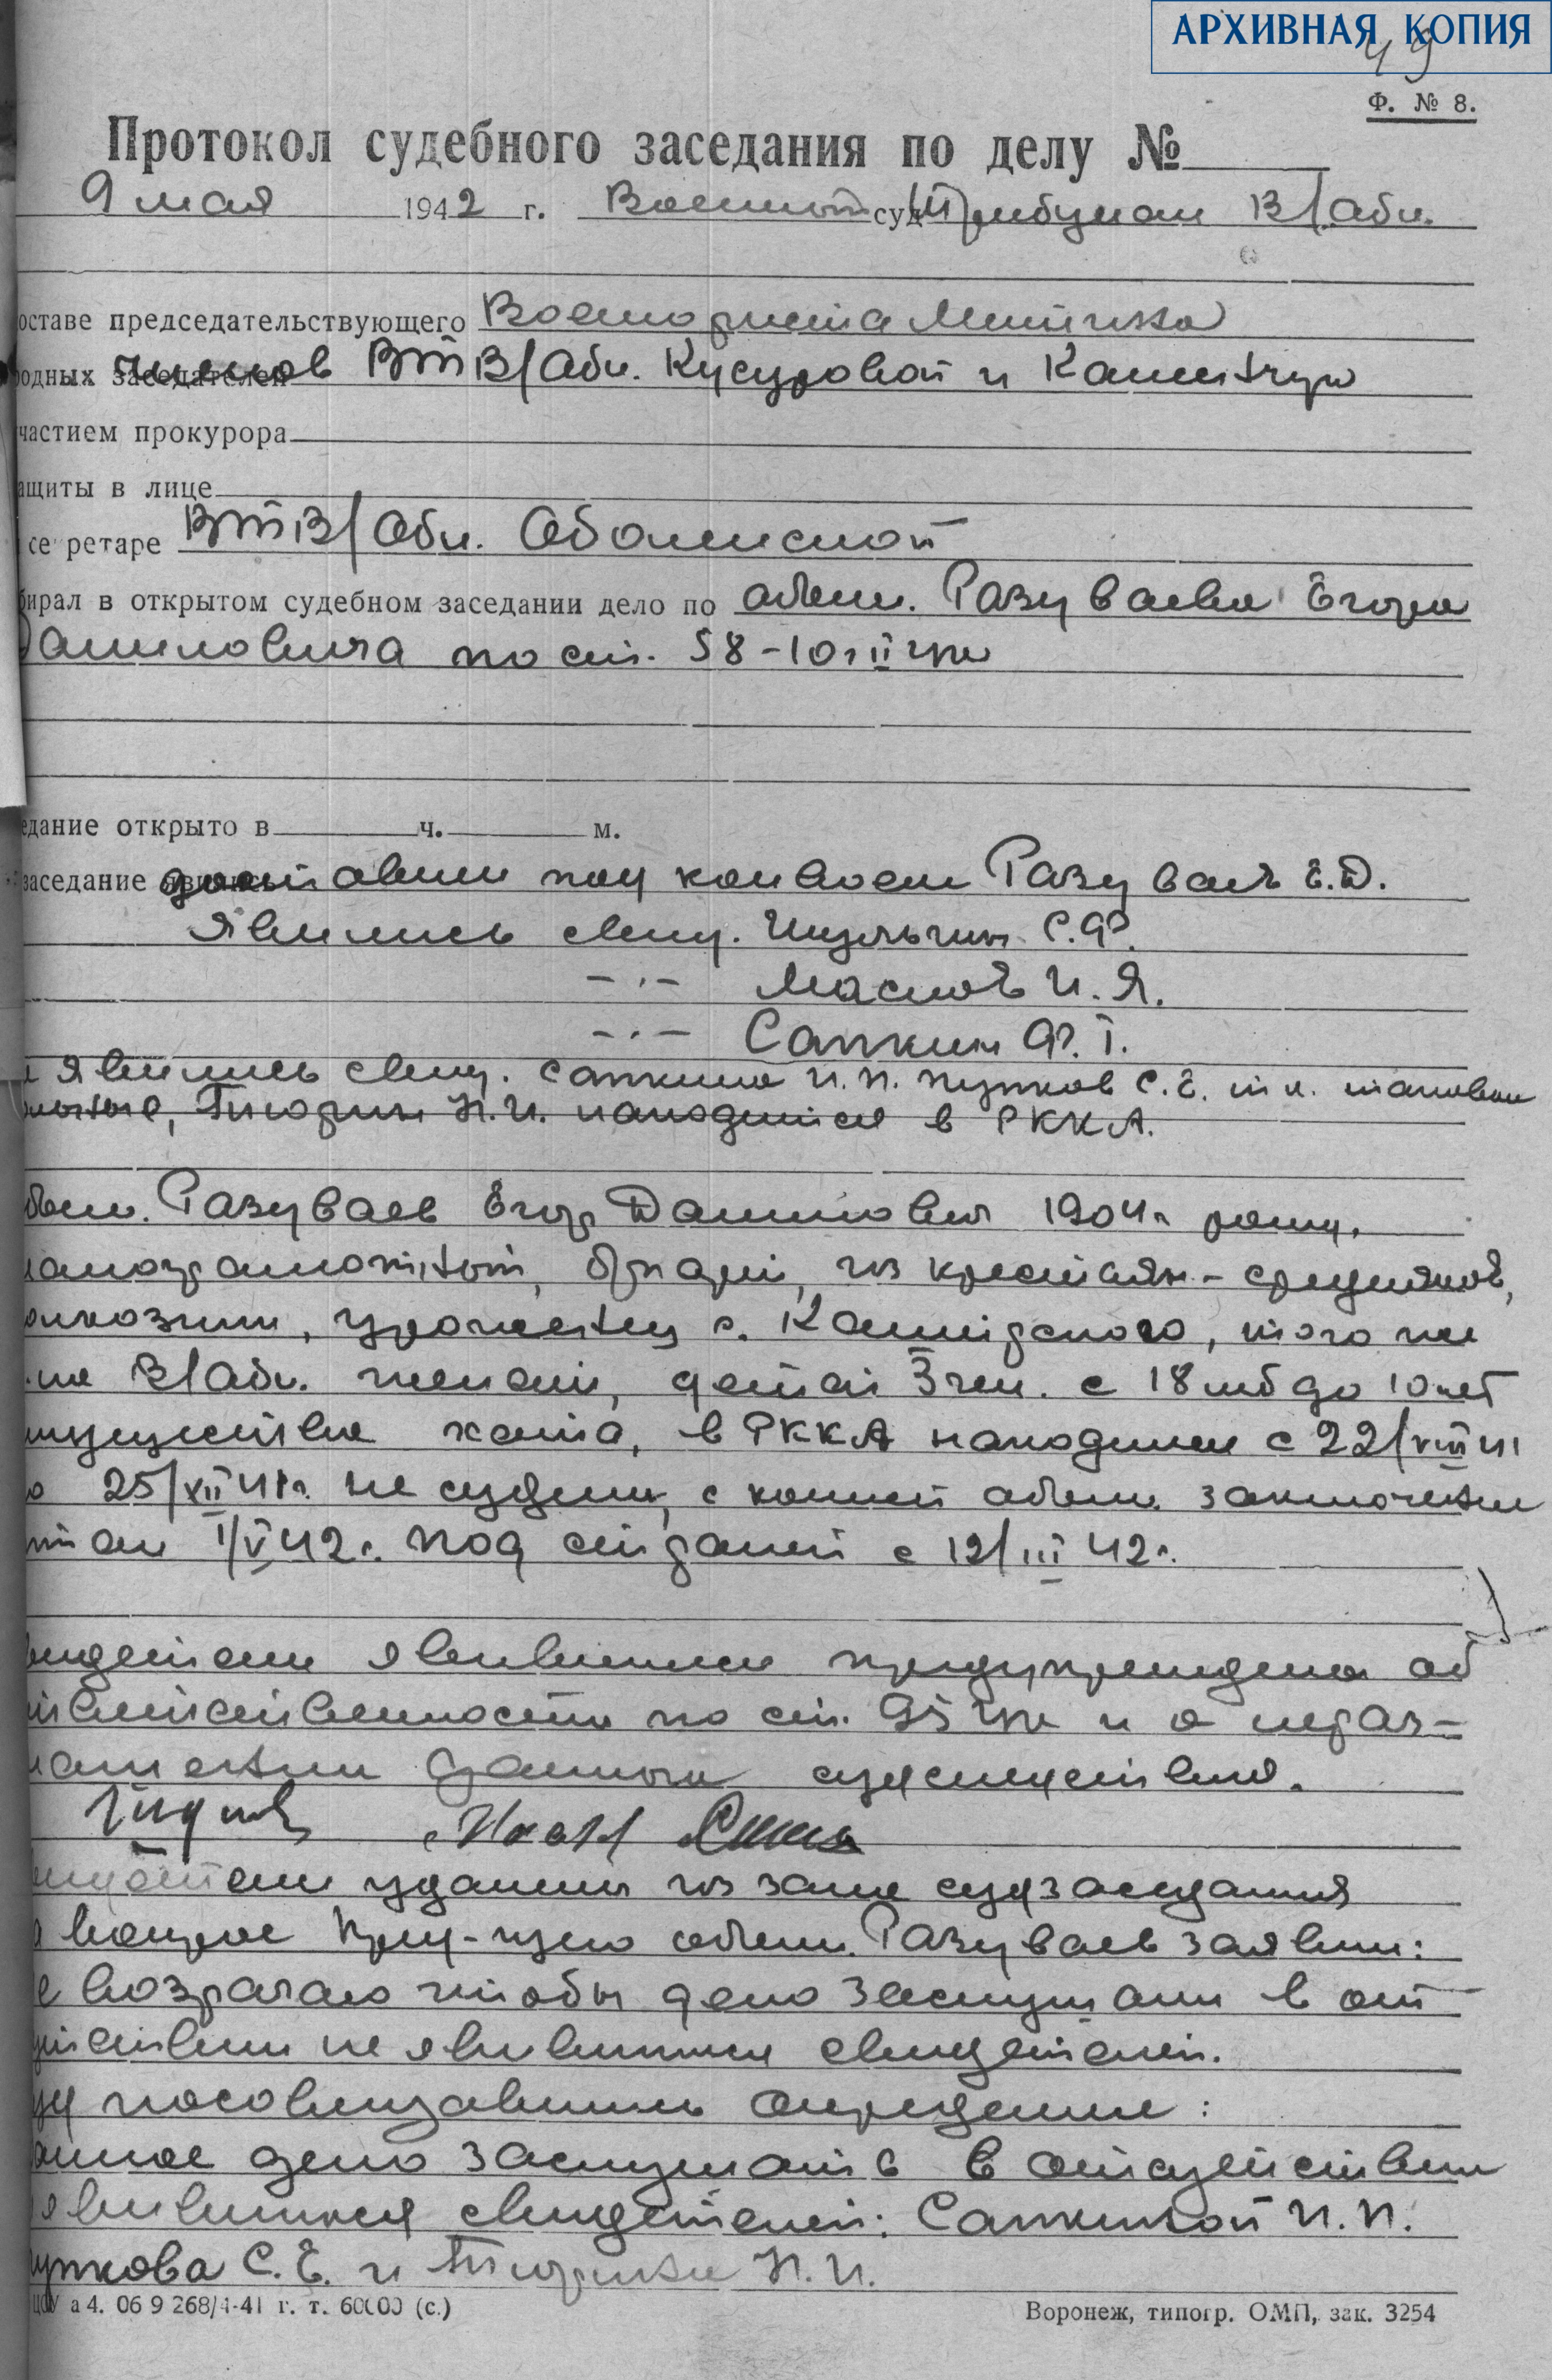 АРХИВНАЯ КОПИЯ
49
Ф. № 8.
Протокол судебного заседания по делу №
9 мая 1942 г. Военный суд Трибунал В/обл.
оставе председательствующего Военюриста
родных заседателей членов ВТ В/Обл. Кусуровой и
частием прокурора
ащиты в лице
се ретаре ВТ В/Обл. Оболенской
бирал в открытом судебном заседании дело по обвин. Разуваева Егора
Даниловича по ст. 58-10 ч II ук
едание открыто в ч. м.
заседание явились доставлен под конвоем Разуваев Е.Д.
Явились свид. С.Ф.
-"- Маслов И.Я.
-"- Сапкин Ф.Т.
е явились свид. Сапкина И.П. Пупков С.Е. т.к. таковые
больные, Тюрин Н.И. находится в РККА.
обвин. Разуваев Егор Данилович 1904 г. рожд.
малограмотный, б/парт, из крестьян-середняков,
олхозник, уроженец с. того же
на В/обл. женат, детей 3 чел. с 18 лет до 10 лет
имущества хата, в РККА находился с 22/VIII 41
о 25/XII 41 г. не судим, с копией обвин. заключения
1/V 42 г. под стражей с 12/III 42 г.
видетели явившиеся предупреждены об
тветственности по ст. 95 ук и о нераз-
глашении данных судследствия.
видетели удалены из зала судзаседания
а вопрос Пред-щего обвин. Разуваев заявил:
е возражаю чтобы дело заслушали в от
сутствии не явившихся свидетелей.
уд посовещавшись определил:
анное дело заслушать в отсутствии
явившихся свидетелей: Сапкиной И.П.
упкова С.Е. и Тюрина Н.И.
а 4. 06 9 268/4-41 г. т. 60000 (с.)
Воронеж, типогр. ОМП, зак. 3254